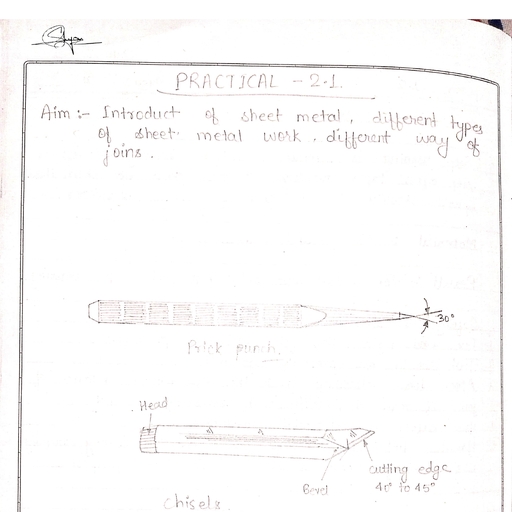 PRACTICAL - 2.1.
Aim :- Introduct of sheet metal, different types
of sheet metal work. different way of
joins.
30°
Prick punch.
Head
cutting edge
40° to 45°
Bevel
chisels.